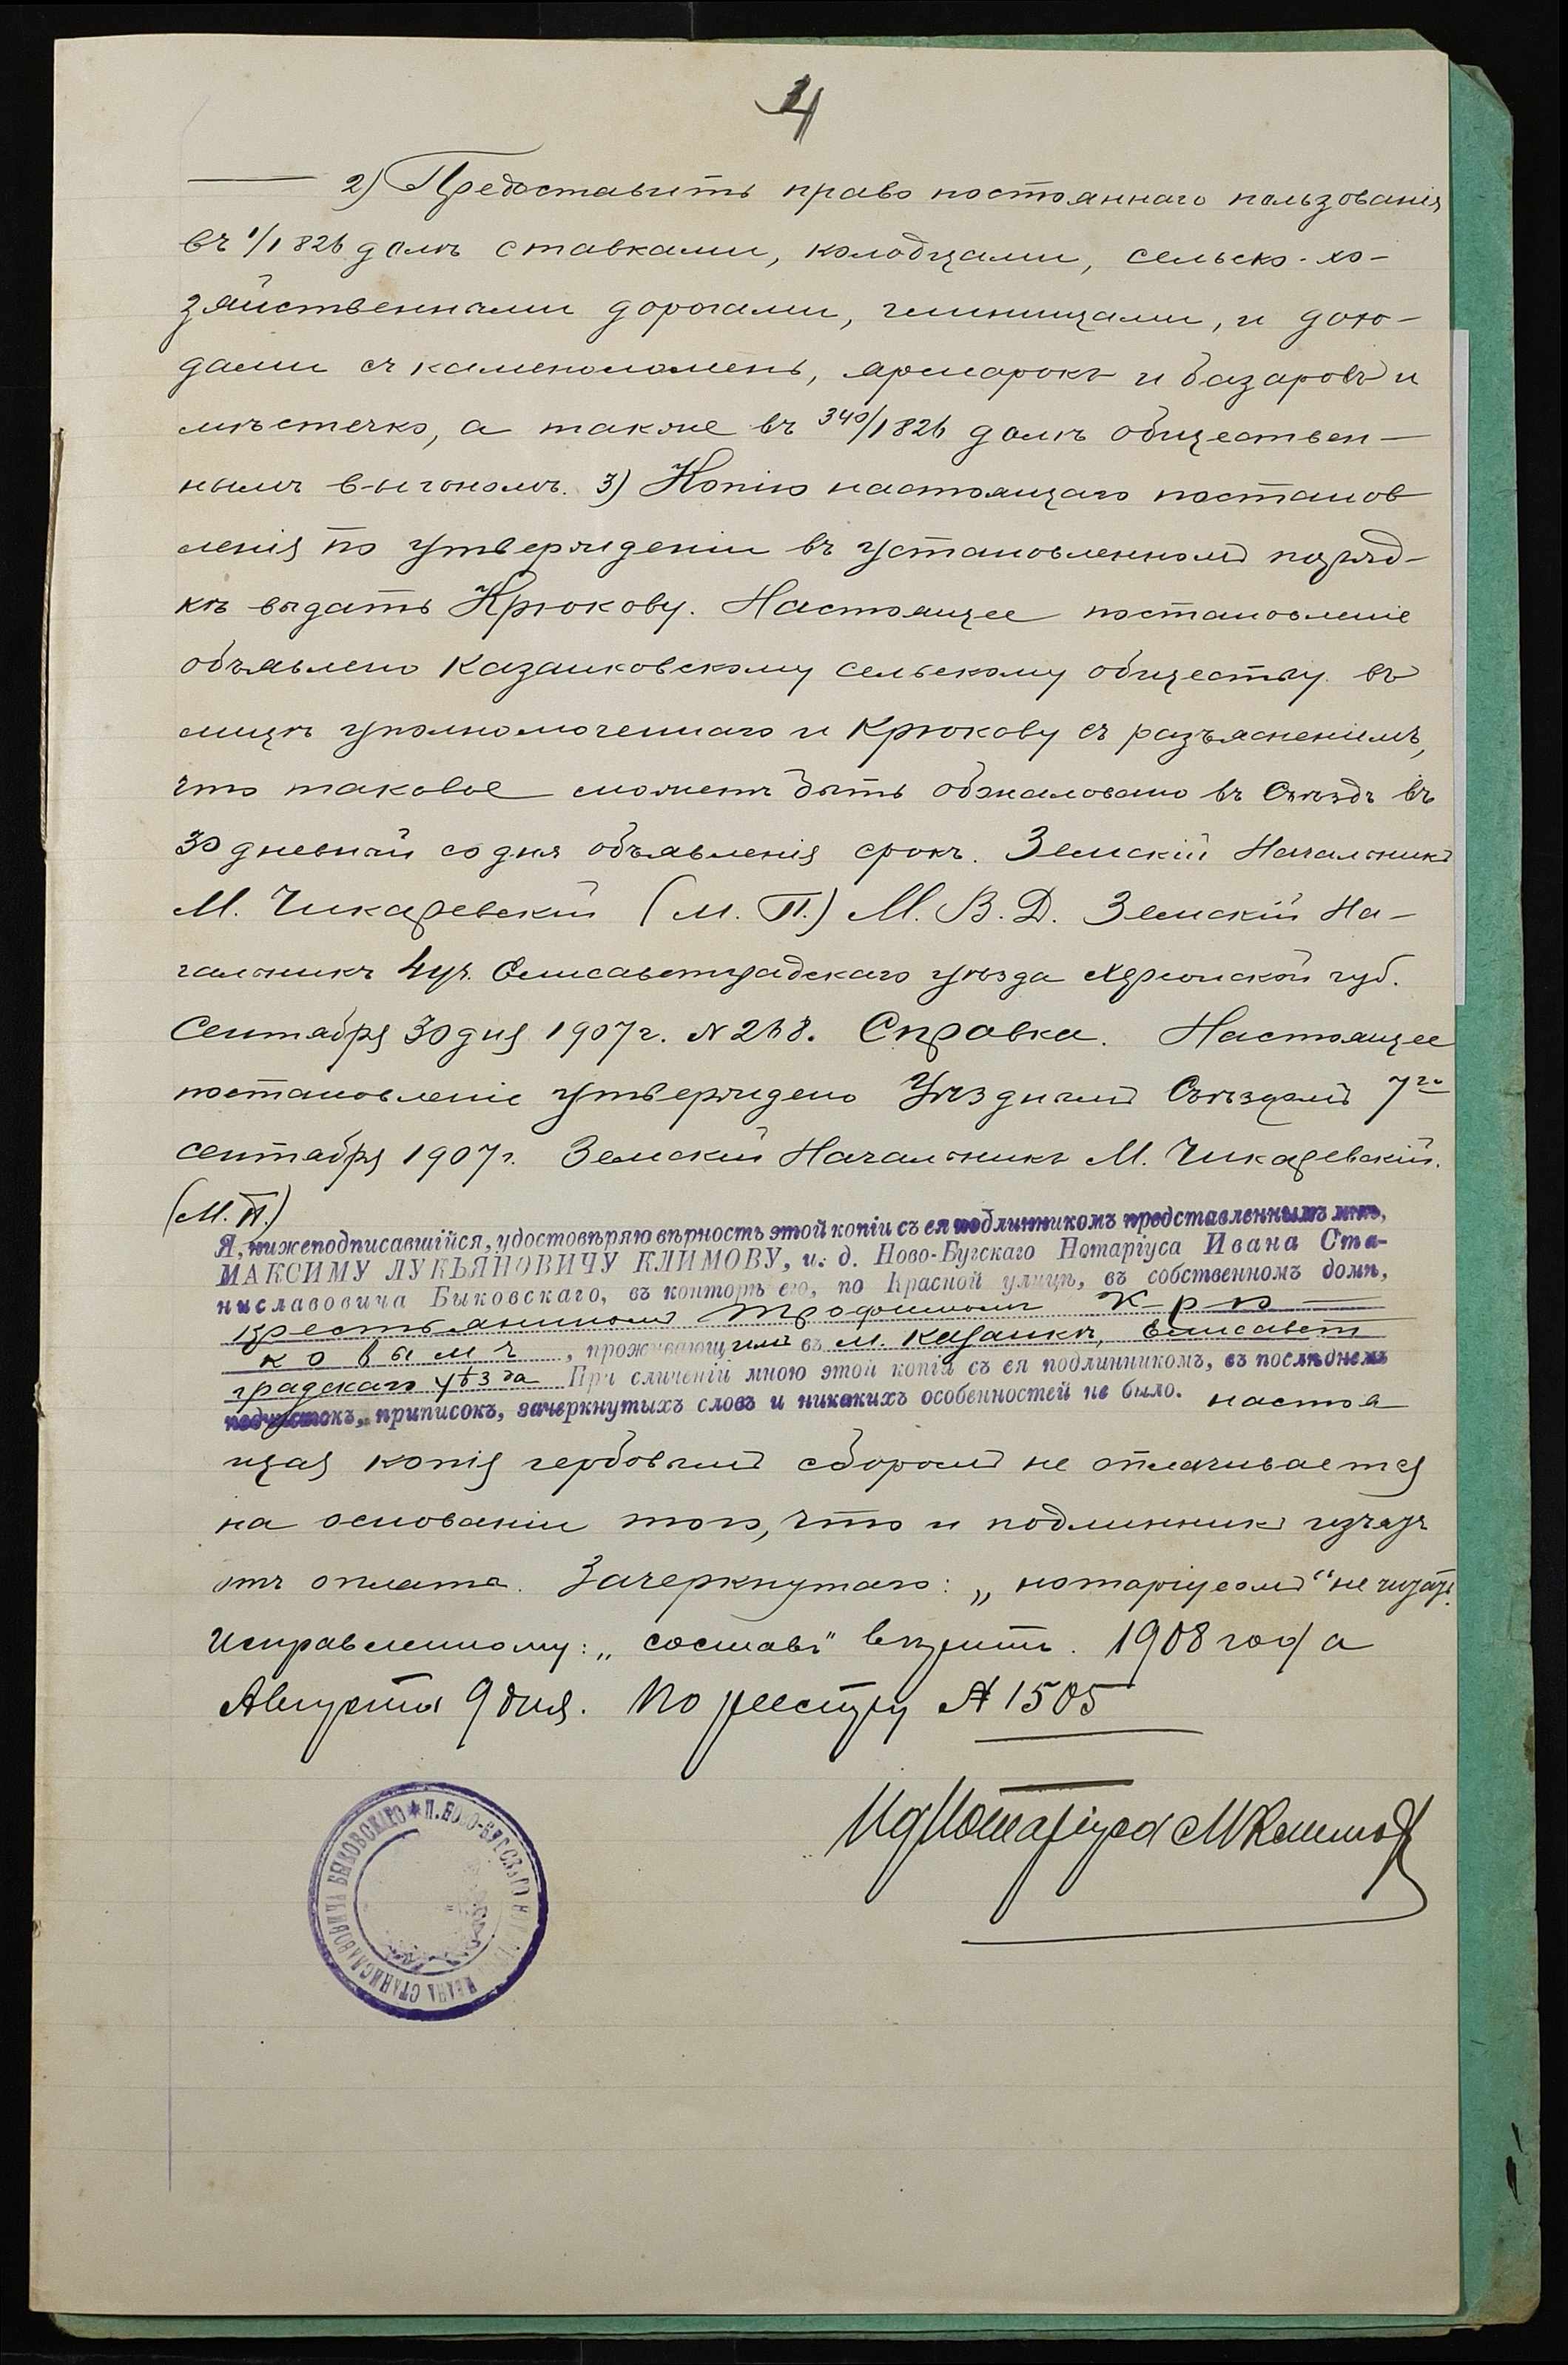 4
2) Предоставить право постояннаго пользованія
въ 1/1826 долѣ ставками, колодцами, сельско-хо-
зяйственными дорогами, глинищами, и дохо-
дами съ каменоломень, ярмарокъ и базаровъ и
мѣстечко, а также въ 340/1826 долѣ обществен-
нымъ выгономъ. 3) Копію настоящаго постанов
ленія по утвержденіи въ установленномъ поряд-
кѣ выдать Крюкову. Настоящее постановленіе
объявлено Казанковскому сельскому обществу въ
лицѣ уполномоченнаго и Крюкову съ разъясненіемъ,
что таковое можетъ быть обжаловано въ Съѣздъ въ
30 дневный со дня объявленія срокъ. Земскій Начальникъ
М. Чикаревскій (М. П.) М. В. Д. Земскій На-
чальникъ 4 уч. Елисаветградскаго уѣзда Херсонской губ.
Сентября 30 дня 1907 г. № 268. Справка. Настоящее
постановленіе утверждено Уѣзднымъ Съѣздомъ 7го
сентября 1907 г. Земскій Начальникъ М. Чикаревскій.
(М. П.)
Я, нижеподписавшійся, удостовѣряю вѣрность этой копіи съ ея подлинникомъ представленнымъ мнѣ,
МАКСИМУ ЛУКЬЯНОВИЧУ КЛИМОВУ, и. д. Ново-Бугскаго Нотаріуса Ивана Ста-
ниславовича Быковскаго, въ конторѣ его, по Красной улицѣ, въ собственномъ домѣ,
крестьяниномъ Трофимомъ Крю
ковымъ, проживающимъ въ м. Казанкѣ, Елисавет
градскаго уѣзда При сличеніи мною этой копіи съ ея подлинникомъ, въ послѣднемъ
подчистокъ, приписокъ, зачеркнутыхъ словъ и никакихъ особенностей не было. настоя
щая копія гербовымъ сборомъ не оплачивается
на основаніи того, что и подлинникъ изъятъ
отъ оплата. Зачеркнутаго: „нотаріусомъ" не читать.
Исправленному: „составъ" вѣрить. 1908 года
Августа 9 дня. По реестру № 1505
И д Нотаріуса М Климовъ
И. НОВО-БУГСКАГО ИВАНА СТАНИСЛАВОВИЧА БЫКОВСКАГО